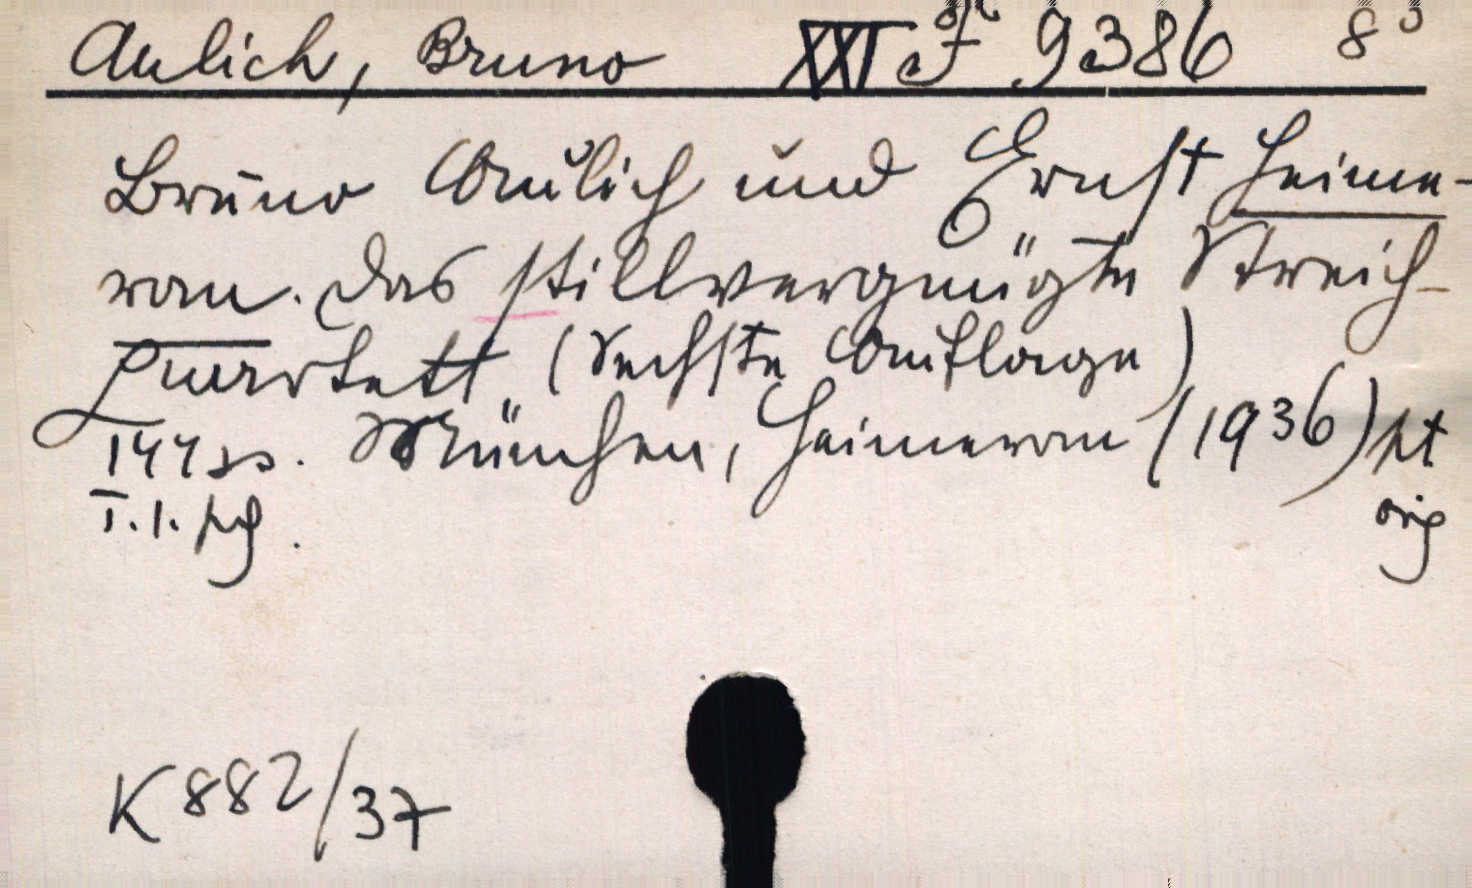 Aulich, Bruno XXI F 9386 8°
Bruno Aulich und Ernst Heime-
ran. Das stillvergnügte Streich-
quartett (Sechste Auflage)
144 ss. München, Heimeran (1936)
K 882/37